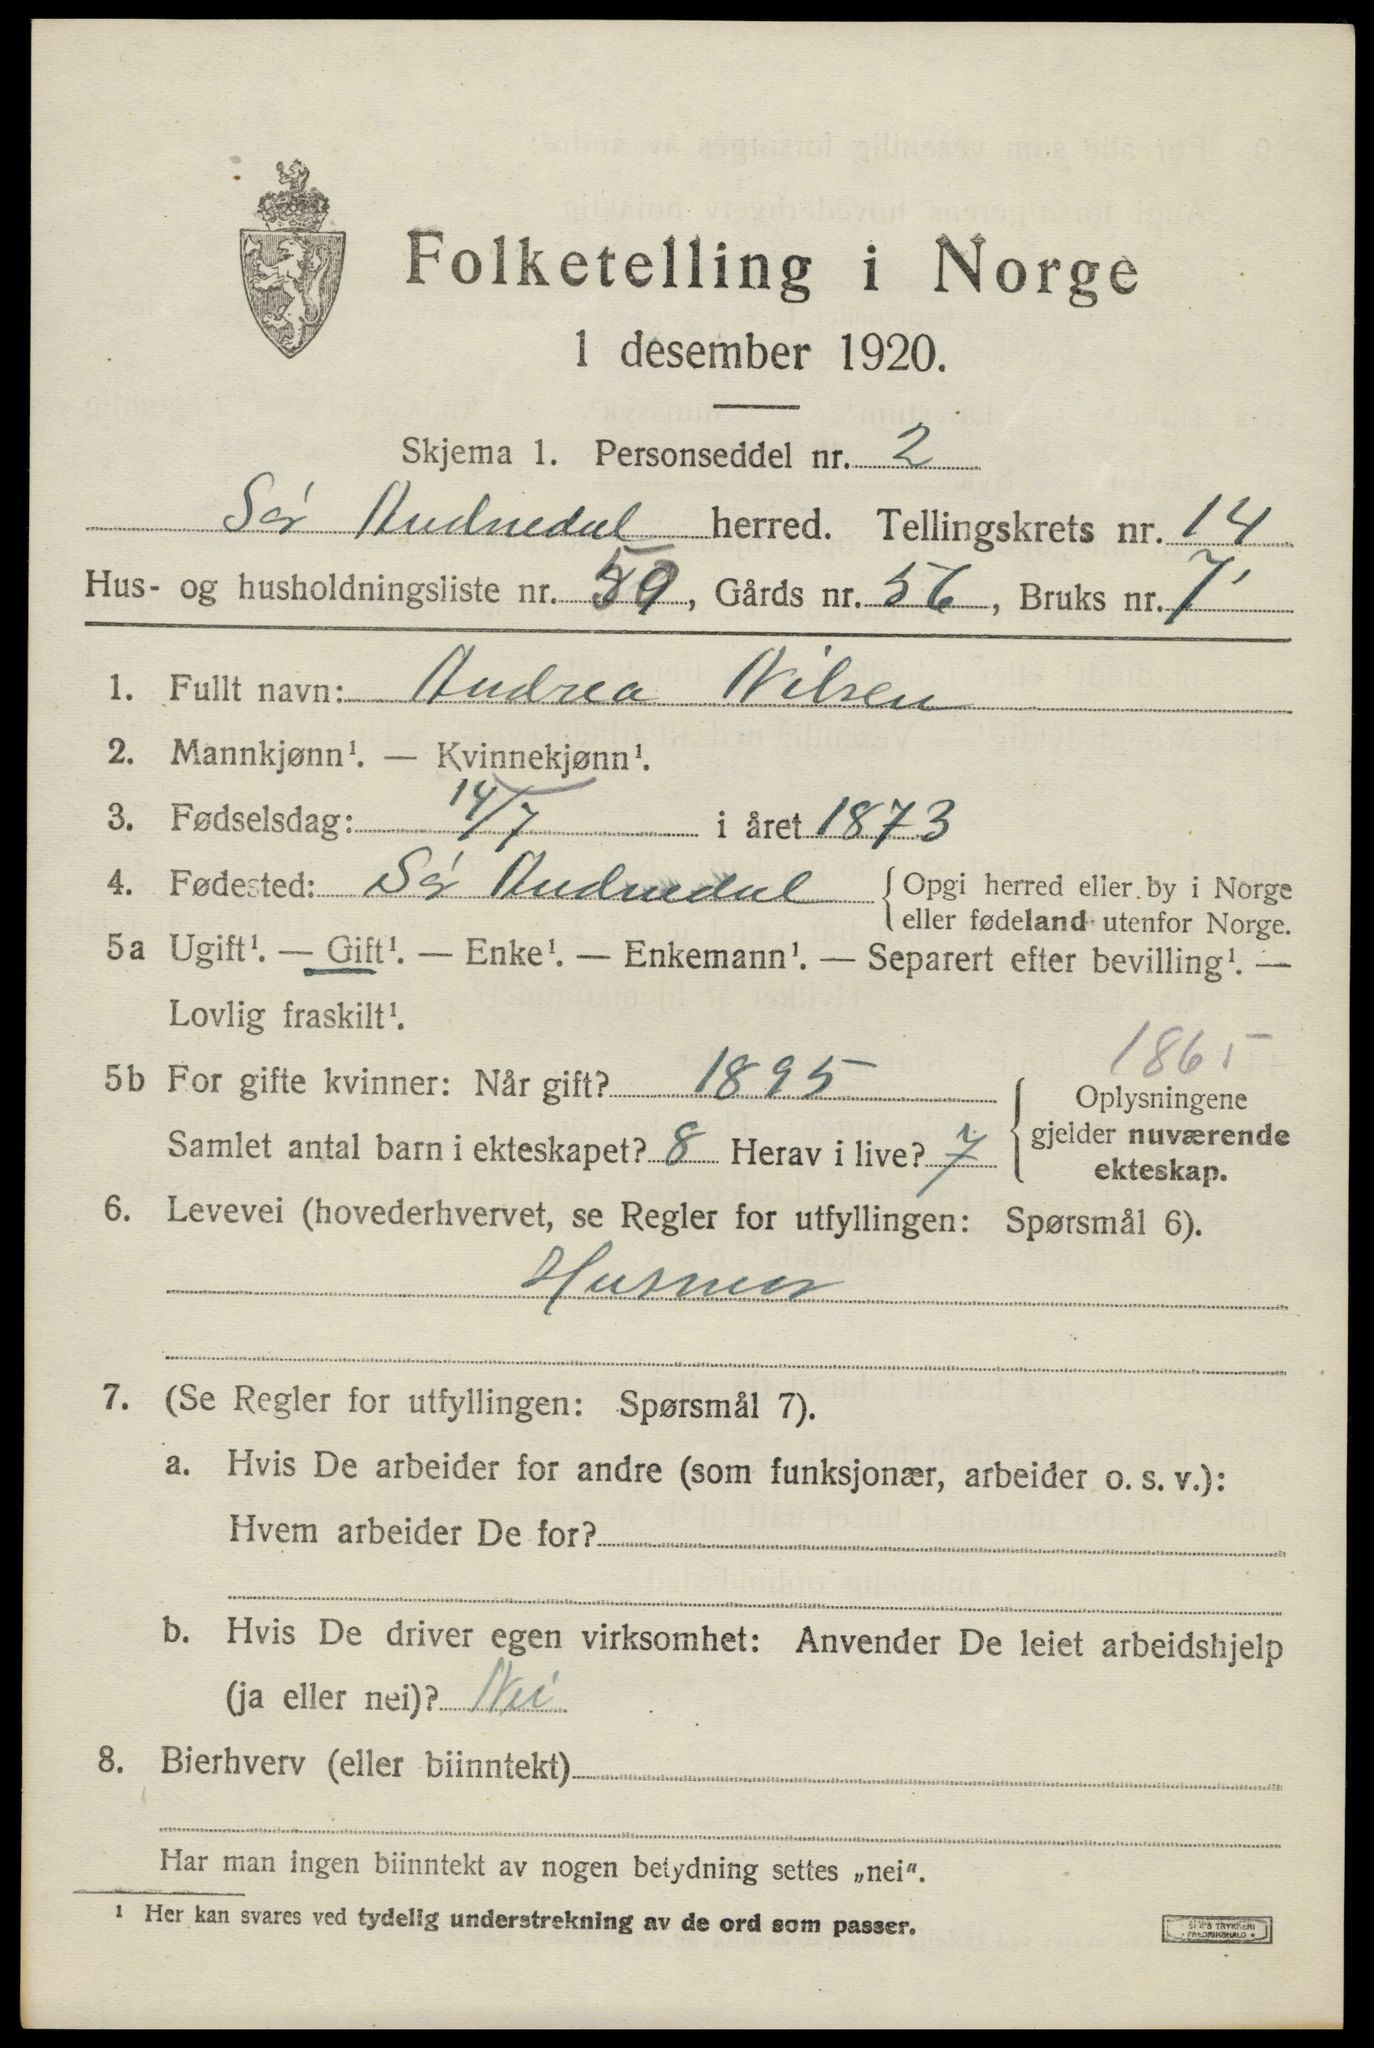 Folketelling i Norge
1 desember 1920.
Skjema 1. Personseddel nr. 2
Sør Audnedal herred. Tellingskrets nr. 14
Hus- og husholdningsliste nr. 59, Gårds nr. 56, Bruks nr. 7
1. Fullt navn: Andrea Nilsen
2. Mannkjønn¹. — Kvinnekjønn¹.
3. Fødselsdag: 14/7 i året 1873
4. Fødested: Sør Audnedal {Opgi herred eller by i Norge
eller fødeland utenfor Norge.
5a Ugift¹. — Gift¹. — Enke¹. — Enkemann¹. — Separert efter bevilling¹. —
Lovlig fraskilt¹.
1865
5b For gifte kvinner: Når gift? 1895 Oplysningene
gjelder nuværende
Samlet antal barn i ekteskapet? 8 Herav i live? 7 ekteskap.
6. Levevei (hovederhvervet, se Regler for utfyllingen: Spørsmål 6).
Husmor
7. (Se Regler for utfyllingen: Spørsmål 7).
a. Hvis De arbeider for andre (som funksjonær, arbeider o. s. v.):
Hvem arbeider De for?
b. Hvis De driver egen virksomhet: Anvender De leiet arbeidshjelp
(ja eller nei)? Nei
8. Bierhverv (eller biinntekt)
Har man ingen biinntekt av nogen betydning settes „nei".
¹ Her kan svares ved tydelig understrekning av de ord som passer.
TRYKKERI
FREDRIKSHALD